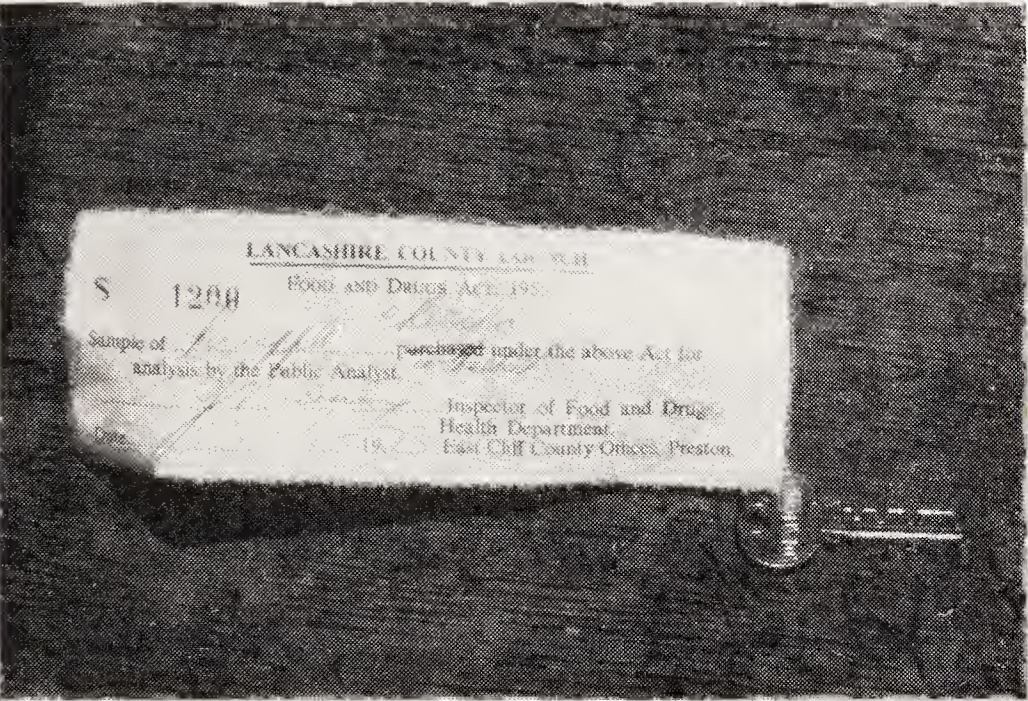 LANCASHIRE COUNTY COUNCIL
S 1200
FOOD AND DRUGS ACT, 195
Sample of purchased under the above Act for
analysis by the Public Analyst.
Inspector of Food and Drugs,
Health Department,
Date 19
East Cliff County Offices, Preston.